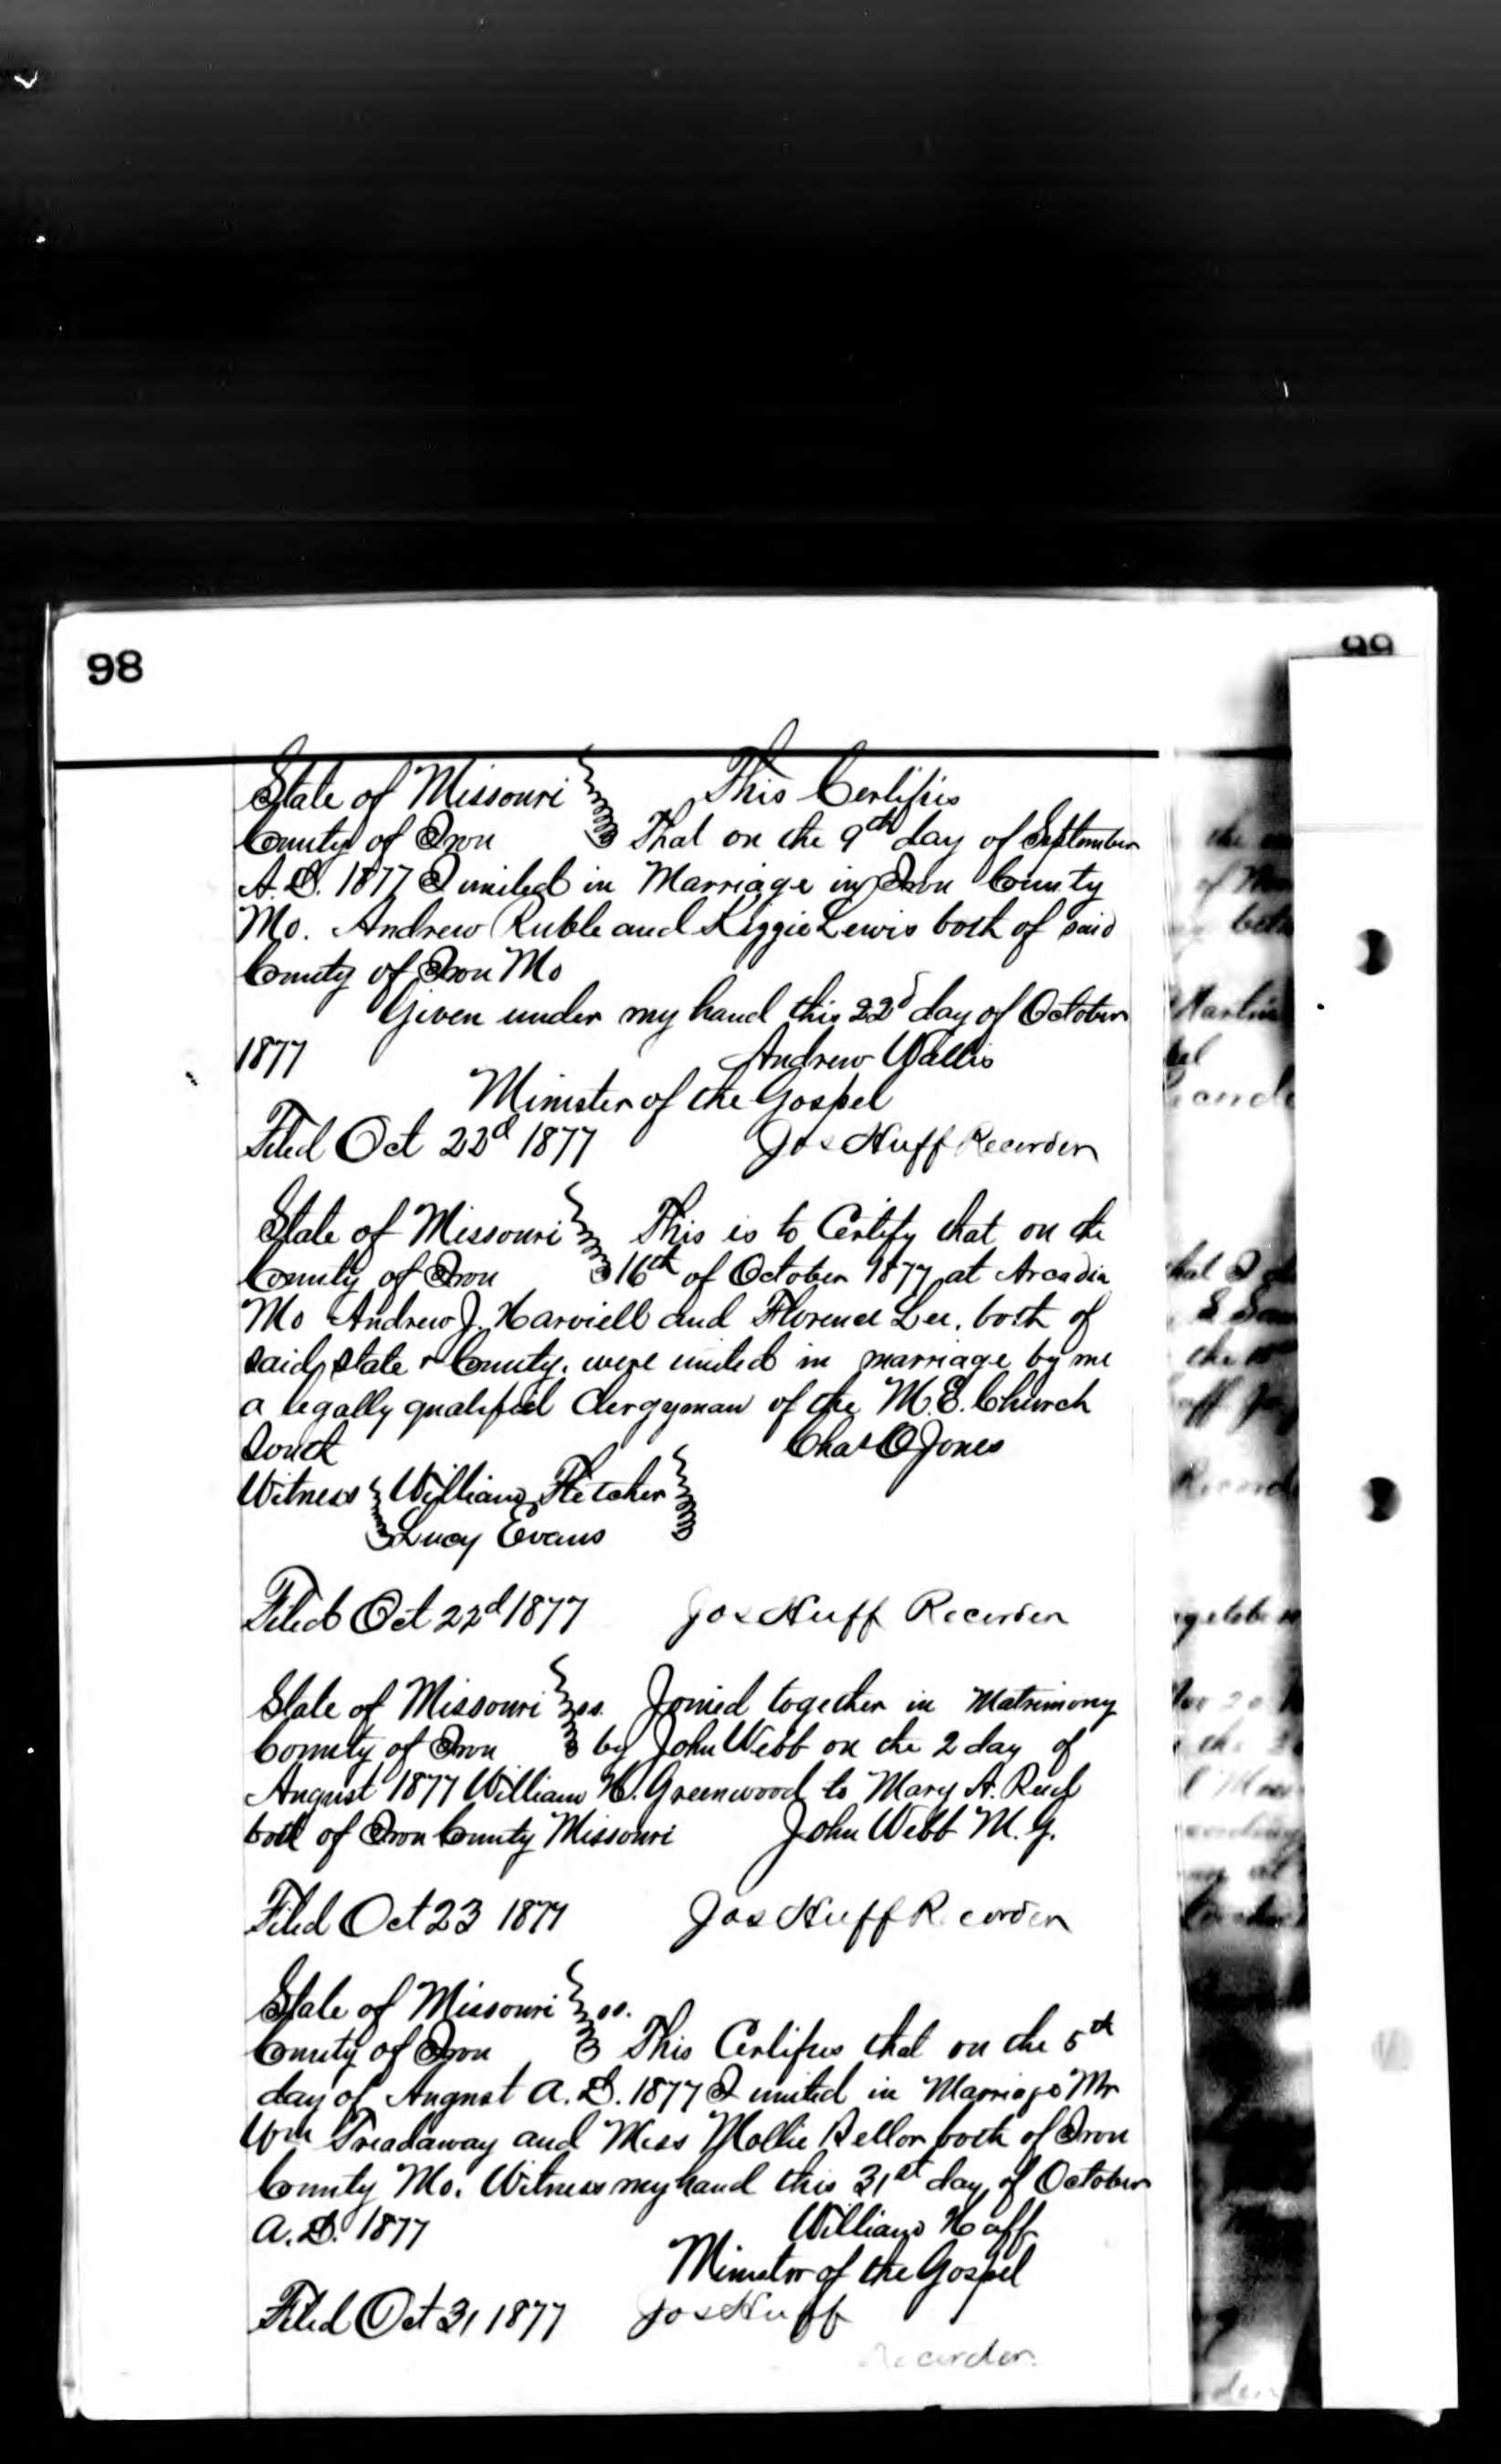 98
99
State of Missouri This Certifies
County of Iron That on the 9th day of September
A.D. 1877 I united in Marriage in Iron County
Mo. Andrew Ruble and Lizzie Lewis both of said
County of Iron Mo
Given under my hand this 22d day of October
1877 Andrew Wallis
Minister of the Gospel
Filed Oct 22d 1877 Jos Huff Recorder
State of Missouri This is to Certify that on the
County of Iron 16th of October 1877 at Arcadia
Mo Andrew J. Harviell and Florence Lee, both of
said state & County, were united in marriage by me
a legally qualified Clergyman of the M.E. Church
South Chas O Jones
Witness William Fletcher
Lucy Evans
Filed Oct 22d 1877 Jos Huff Recorder
State of Missouri ss. Joined together in Matrimony
County of Iron by John Webb on the 2 day of
August 1877 William H. Greenwood to Mary A.
both of Iron County Missouri John Webb M.G.
Filed Oct 23 1877 Jos Huff Recorder
State of Missouri ss.
County of Iron This Certifies that on the 5th
day of August A.D. 1877 I united in Marriage Mr
Wm Treadaway and Miss Mollie both of Iron
County Mo. Witness my hand this 31st day of October
A.D. 1877 William Huff
Minister of the Gospel
Filed Oct 31 1877 Jos Huff
Recorder.